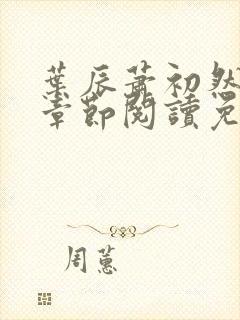 葉辰蕭初然
章節閱讀免
周蕙